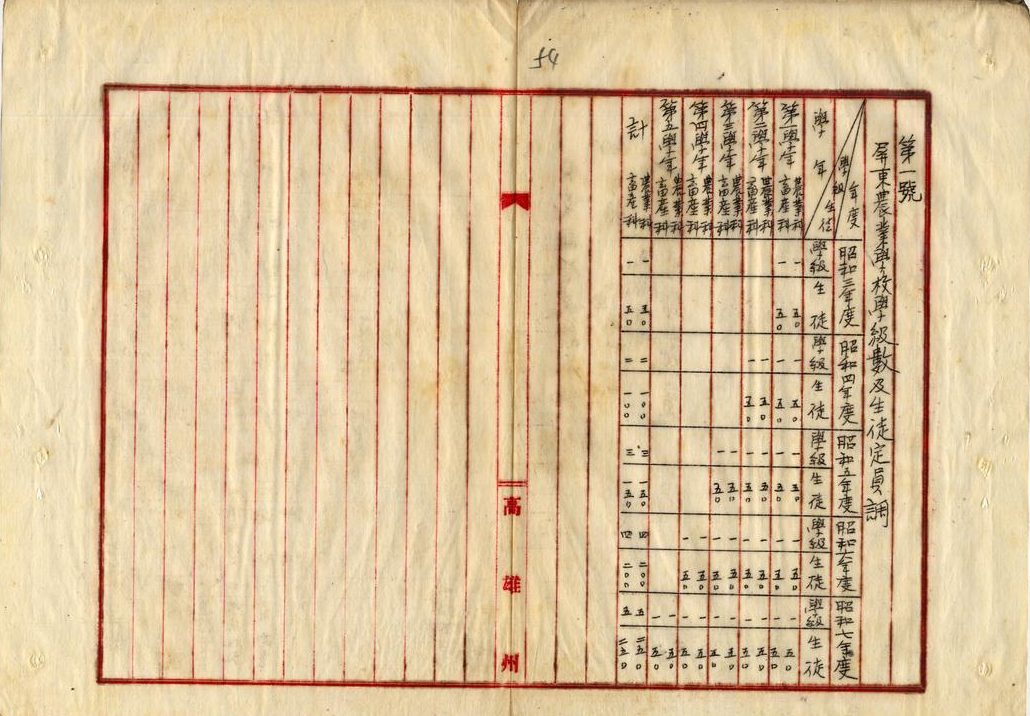 54
第一號
屏東農業學校學級數及生徒定員調
年度 昭和三年度 昭和四年度 昭和五年度 昭和六年度 昭和七年度
學級生徒
學年 學級 生徒 學級 生徒 學級 生徒 學級 生徒 學級 生徒
第一學年 農業科 一 五〇 一 五〇 一 五〇 一 五〇 一 五〇
畜産科 一 五〇 一 五〇 一 五〇 一 五〇 一 五〇
第二學年 農業科 一 五〇 一 五〇 一 五〇 一 五〇
畜産科 一 五〇 一 五〇 一 五〇 一 五〇
第三學年 農業科 一 五〇 一 五〇 一 五〇
畜産科 一 五〇 一 五〇 一 五〇
第四學年 農業科 一 五〇 一 五〇
畜産科 一 五〇 一 五〇
第五學年 農業科 一 五〇
畜産科 一 五〇
計 農業科 一 五〇 二 一〇〇 三 一五〇 四 二〇〇 五 二五〇
畜産科 一 五〇 二 一〇〇 三 一五〇 四 二〇〇 五 二五〇
高雄州